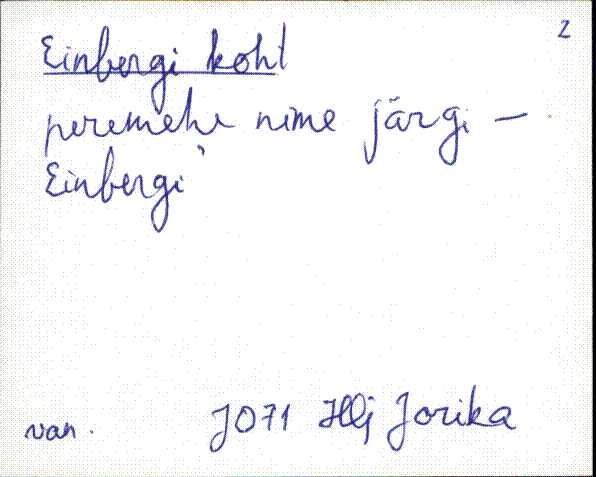 2
Einbergi koht
peremehe nime järgi —
Einbergi
van. J071 Illj Jorika